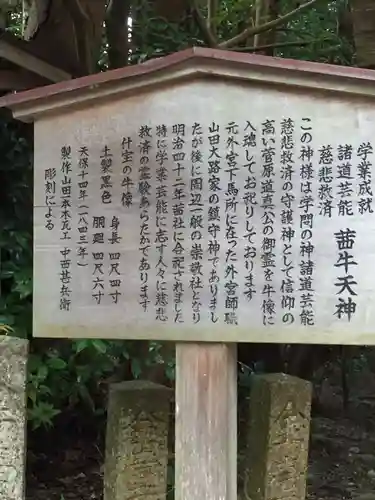 学業成就
諸道芸能　茜牛天神
慈悲救済
この神様は学問の神諸道芸能
慈悲救済の守護神として信仰の
高い菅原道真公の御霊を牛像に
入魂してお祀りしております
元外宮下馬所に在った外宮師職
山田大路家の鎮守神でありまし
たが後に周辺一般の崇敬社となり
明治四十二年茜社に合祀されました
特に学業芸能に志す人々に慈悲
救済の霊験あらたかであります
什宝の牛像
土製黒色　身長　四尺四寸
胴廻　四尺六寸
天保十四年（一八四三年）
製作山田木木瓦工　中西甚兵衛
彫刻による